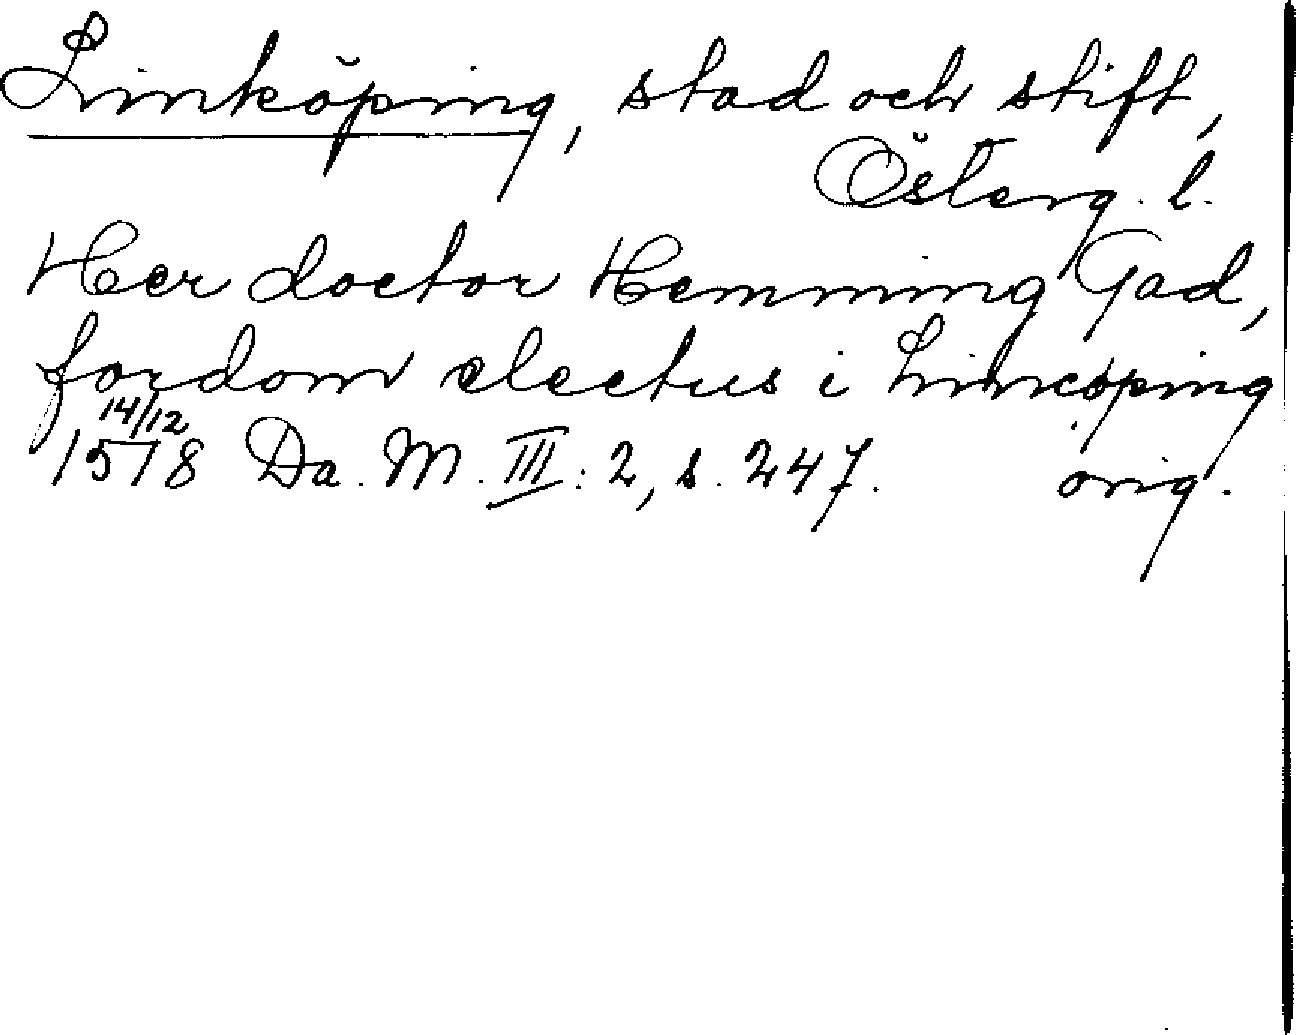 Linköping, stad och stift,
Österg. l.
Her doctor Hemming Gad,
fordom electus i Linncöping
14/12
1518 Da. M. III: 2, s. 247. orig.